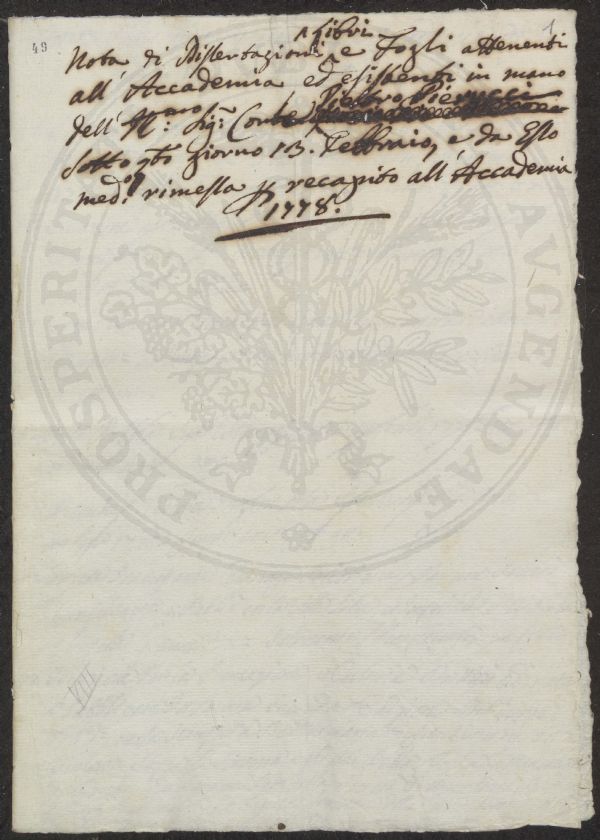 49
1
Libri
Nota di Dissertazioni, e Fogli attenenti
all' Accademia ed esistenti in mano
dell' Ill:mo Sig:r Conte Pietro Pierucci
Sotto qto giorno 13. Febbraio, e da Esso
med:o rimessa p recapito all' Accademia
1778.
PROSPERITATI AUGENDAE
VIII